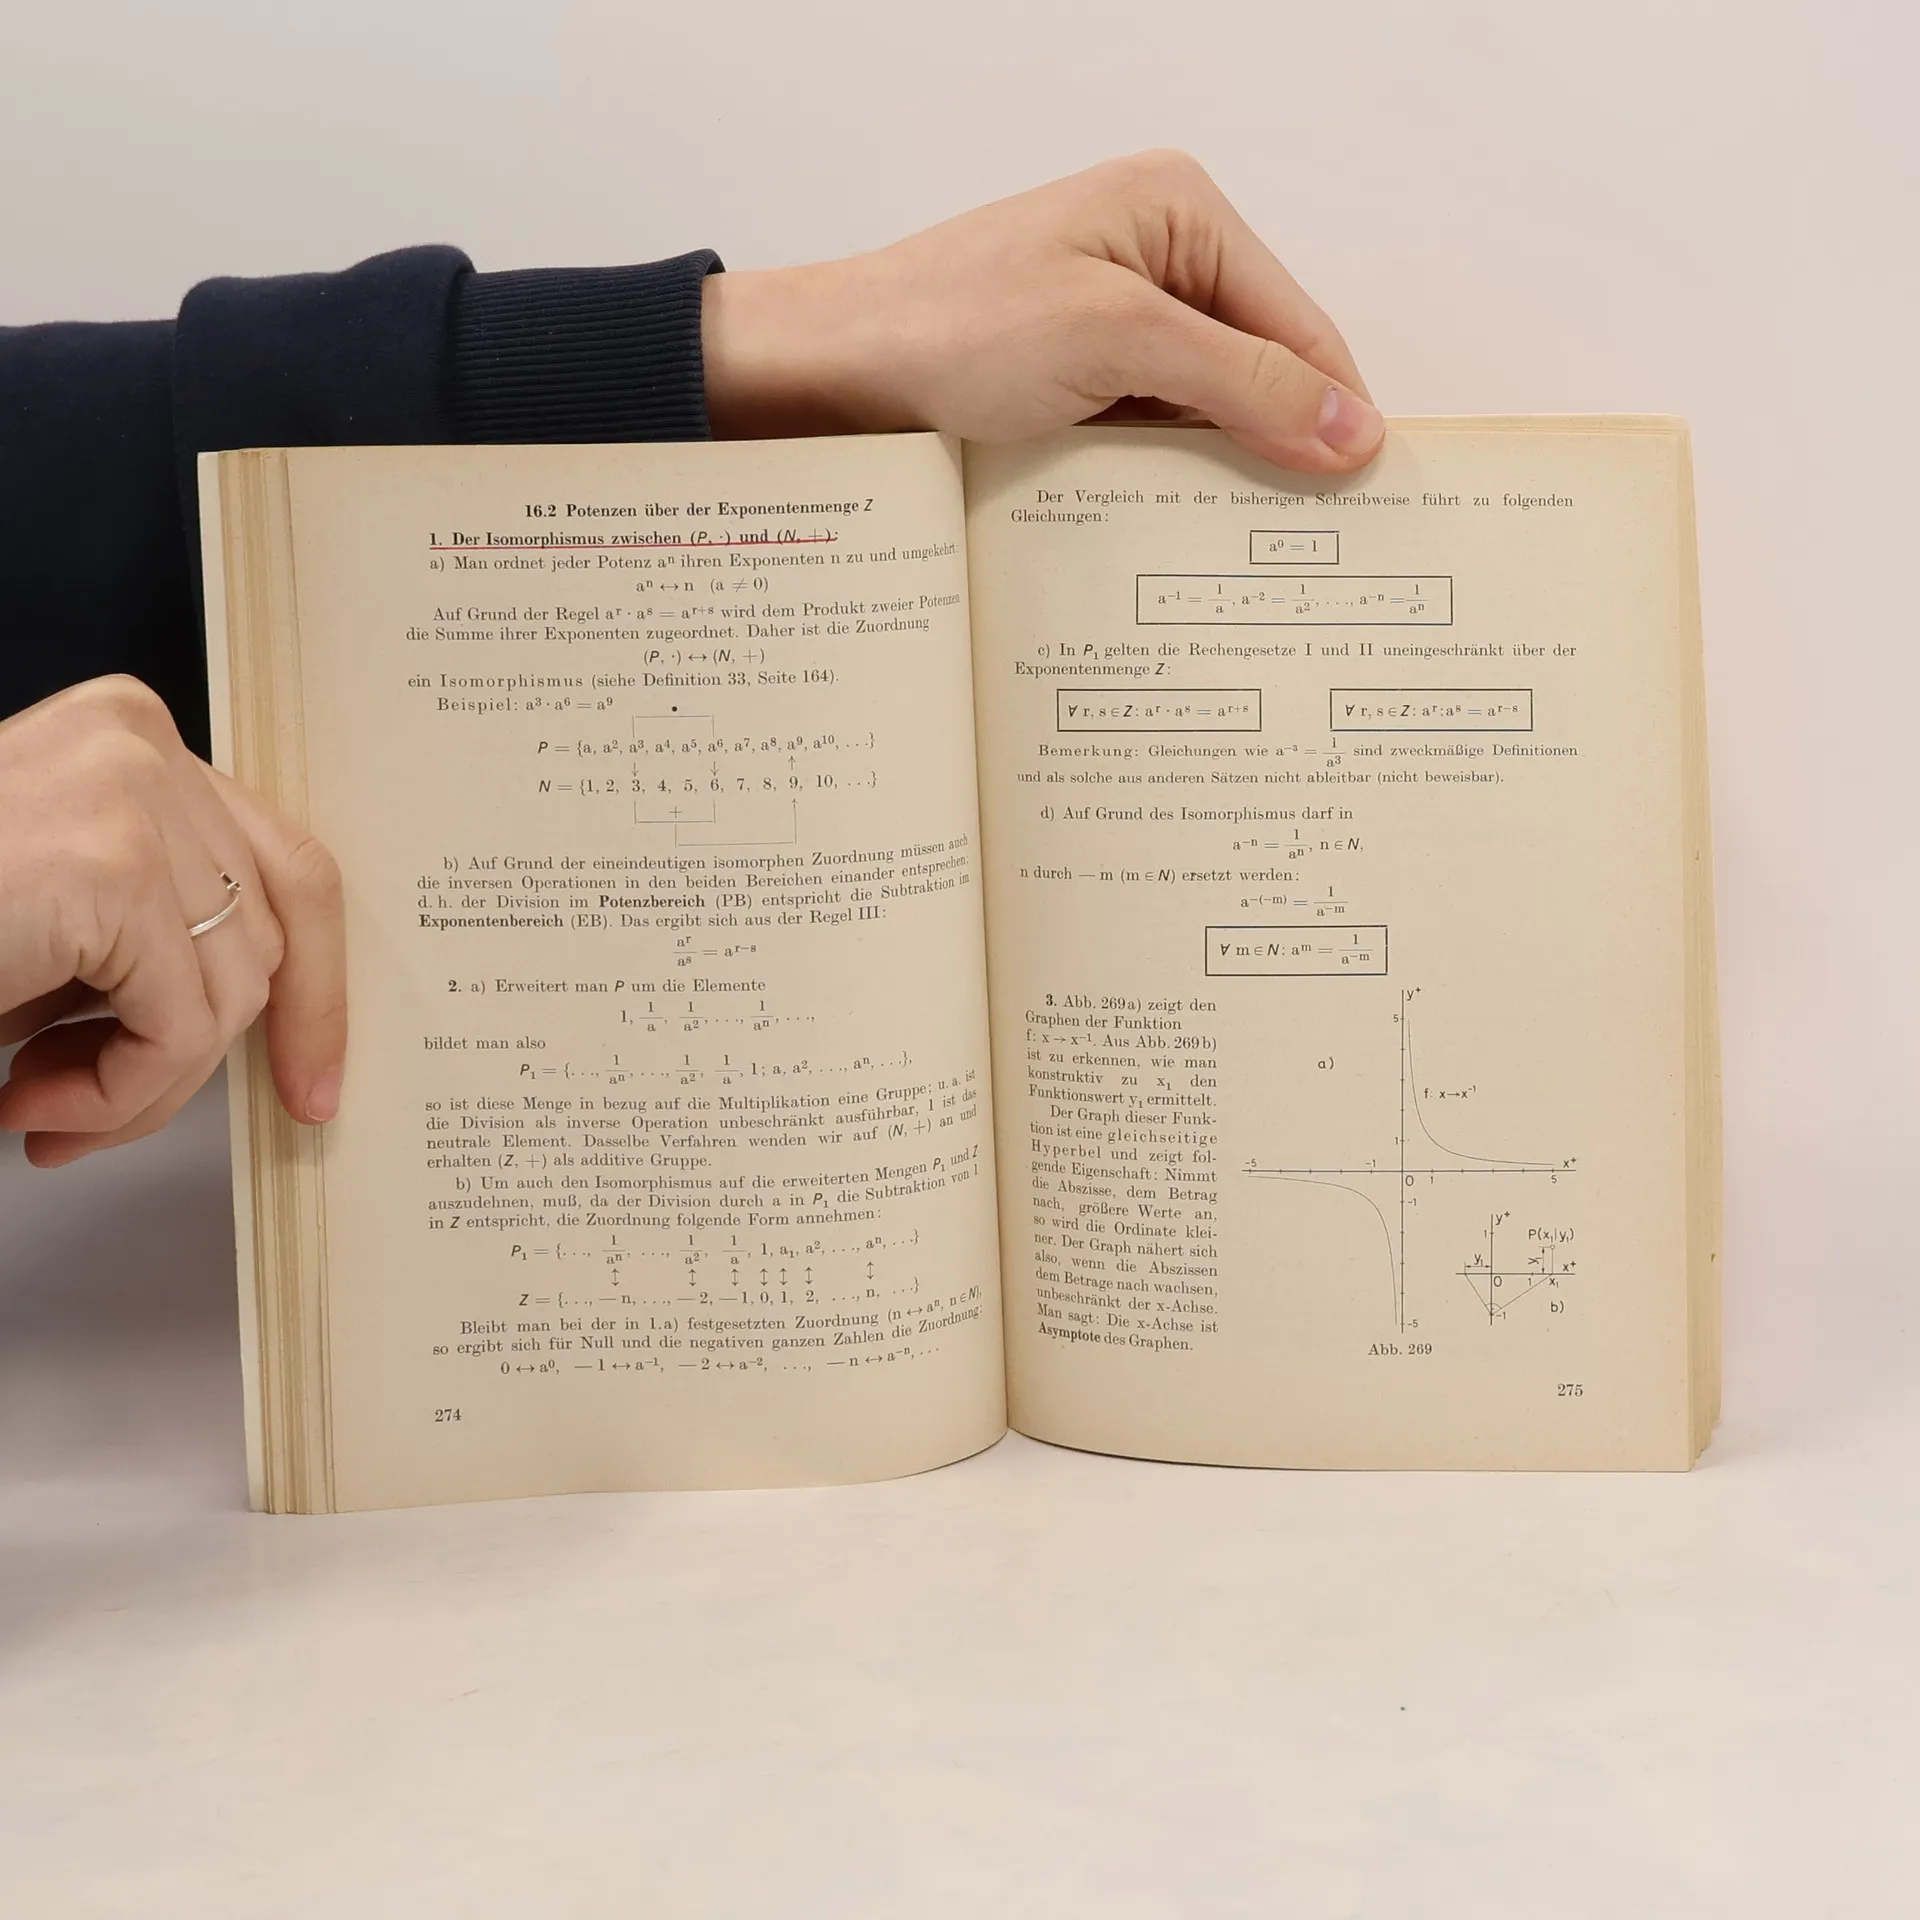 16.2 Potenzen über der Exponentenmenge Z
1. Der Isomorphismus zwischen (P, ·) und (N, +):
a) Man ordnet jeder Potenz aⁿ ihren Exponenten n zu und umgekehrt:
aⁿ ↔ n (a ≠ 0)
Auf Grund der Regel aʳ · aˢ = aʳ⁺ˢ wird dem Produkt zweier Potenzen
die Summe ihrer Exponenten zugeordnet. Daher ist die Zuordnung
(P, ·) ↔ (N, +)
ein Isomorphismus (siehe Definition 33, Seite 164).
Beispiel: a³ · a⁶ = a⁹
•
P = {a, a², a³, a⁴, a⁵, a⁶, a⁷, a⁸, a⁹, a¹⁰, . . .}
↓ ↓ ↑
N = {1, 2, 3, 4, 5, 6, 7, 8, 9, 10, . . .}
+
b) Auf Grund der eineindeutigen isomorphen Zuordnung müssen auch
die inversen Operationen in den beiden Bereichen einander entsprechen;
d. h. der Division im Potenzbereich (PB) entspricht die Subtraktion im
Exponentenbereich (EB). Das ergibt sich aus der Regel III:
aʳ/aˢ = aʳ⁻ˢ
2. a) Erweitert man P um die Elemente
1, 1/a, 1/a², . . ., 1/aⁿ, . . .,
bildet man also
P₁ = {. . ., 1/aⁿ, . . ., 1/a², 1/a, 1; a, a², . . ., aⁿ, . . .},
so ist diese Menge in bezug auf die Multiplikation eine Gruppe; u. a. ist
die Division als inverse Operation unbeschränkt ausführbar, 1 ist das
neutrale Element. Dasselbe Verfahren wenden wir auf (N, +) an und
erhalten (Z, +) als additive Gruppe.
b) Um auch den Isomorphismus auf die erweiterten Mengen P₁ und Z
auszudehnen, muß, da der Division durch a in P₁ die Subtraktion von 1
in Z entspricht, die Zuordnung folgende Form annehmen:
P₁ = {. . ., 1/aⁿ, . . ., 1/a², 1/a, 1, a₁, a², . . ., aⁿ, . . .}
↕ ↕ ↕ ↕ ↕ ↕ ↕
Z = {. . ., — n, . . ., — 2, — 1, 0, 1, 2, . . ., n, . . .}
Bleibt man bei der in 1.a) festgesetzten Zuordnung (n ↔ aⁿ, n ∈ N),
so ergibt sich für Null und die negativen ganzen Zahlen die Zuordnung:
0 ↔ a⁰, — 1 ↔ a⁻¹, — 2 ↔ a⁻², . . ., — n ↔ a⁻ⁿ, . . .
274
Der Vergleich mit der bisherigen Schreibweise führt zu folgenden
Gleichungen:
a⁰ = 1
a⁻¹ = 1/a, a⁻² = 1/a², . . ., a⁻ⁿ = 1/aⁿ
c) In P₁ gelten die Rechengesetze I und II uneingeschränkt über der
Exponentenmenge Z:
∀ r, s ∈ Z: aʳ · aˢ = aʳ⁺ˢ ∀ r, s ∈ Z: aʳ : aˢ = aʳ⁻ˢ
Bemerkung: Gleichungen wie a⁻³ = 1/a³ sind zweckmäßige Definitionen
und als solche aus anderen Sätzen nicht ableitbar (nicht beweisbar).
d) Auf Grund des Isomorphismus darf in
a⁻ⁿ = 1/aⁿ, n ∈ N,
n durch — m (m ∈ N) ersetzt werden:
a⁻⁽⁻ᵐ⁾ = 1/a⁻ᵐ
∀ m ∈ N: aᵐ = 1/a⁻ᵐ
3. Abb. 269a) zeigt den
Graphen der Funktion
f: x → x⁻¹. Aus Abb. 269b)
ist zu erkennen, wie man
konstruktiv zu x₁ den
Funktionswert y₁ ermittelt.
Der Graph dieser Funk-
tion ist eine gleichseitige
Hyperbel und zeigt fol-
gende Eigenschaft: Nimmt
die Abszisse, dem Betrag
nach, größere Werte an,
so wird die Ordinate klei-
ner. Der Graph nähert sich
also, wenn die Abszissen
dem Betrage nach wachsen,
unbeschränkt der x-Achse.
Man sagt: Die x-Achse ist
Asymptote des Graphen.
y⁺
5
a)
f: x→x⁻¹
1
-5 -1 x⁺
0 1 5
-1
-5
y⁺
1 P(x₁|y₁)
y₁ y₁ x⁺
0 1 x₁
-1 b)
Abb. 269
275